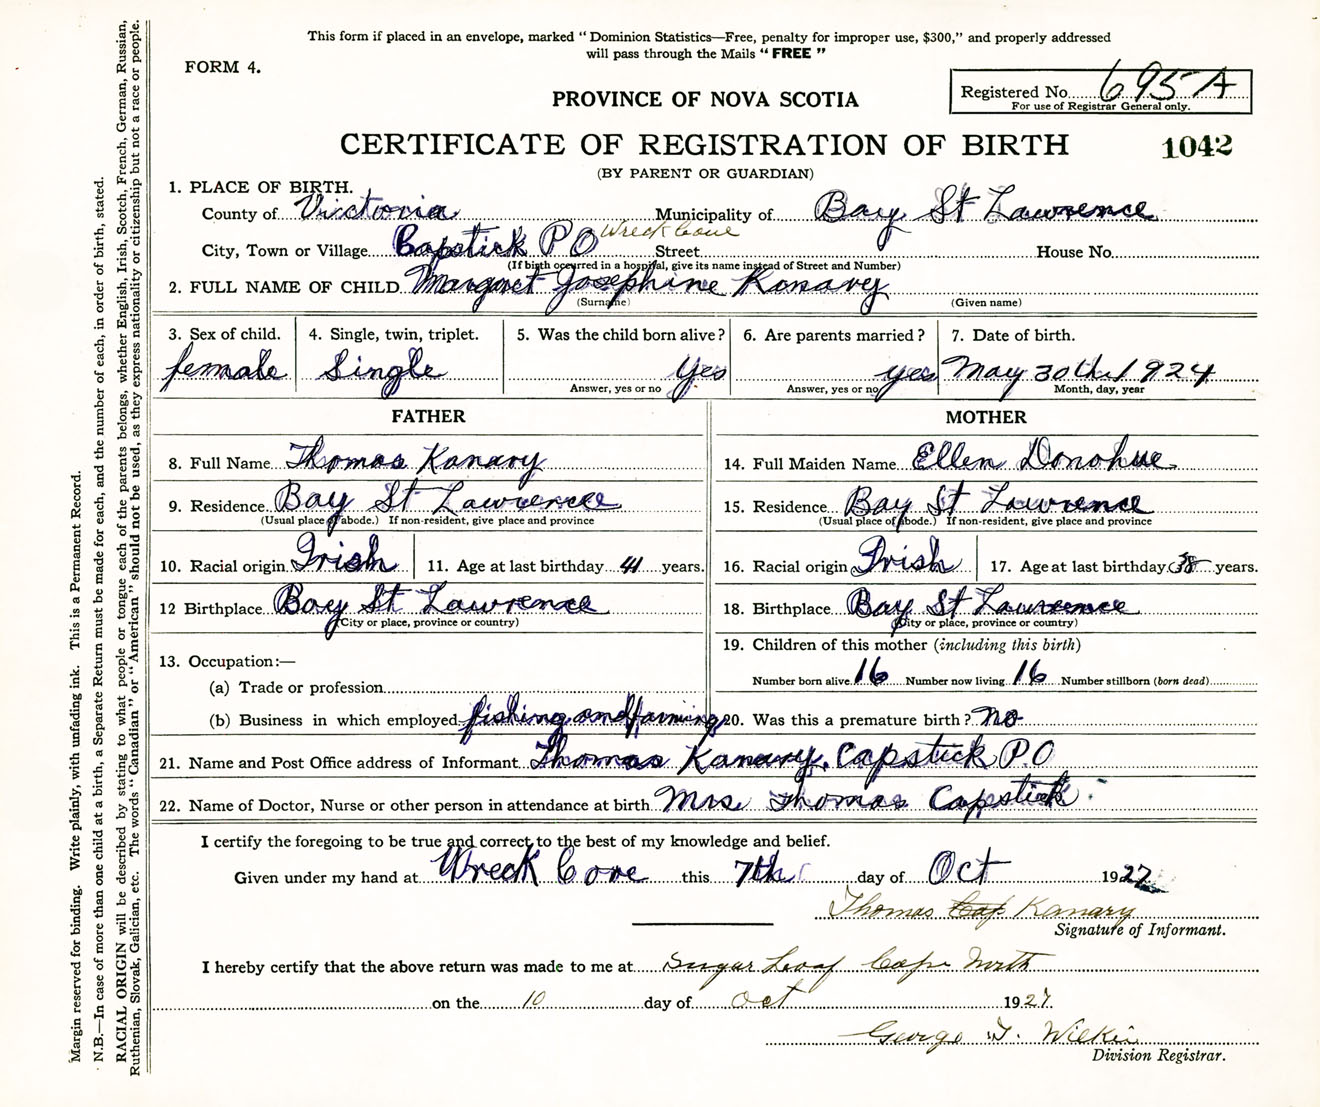 This form if placed in an envelope, marked “ Dominion Statistics—Free, penalty for improper use, $300,” and properly addressed
will pass through the Mails “ FREE ”
FORM 4.
Registered No. 695 A
For use of Registrar General only.
PROVINCE OF NOVA SCOTIA
CERTIFICATE OF REGISTRATION OF BIRTH 1042
(BY PARENT OR GUARDIAN)
1. PLACE OF BIRTH.
County of Victoria Municipality of Bay St Lawrence
City, Town or Village Capstick P O Wreck Cove Street House No.
(If birth occurred in a hospital, give its name instead of Street and Number)
2. FULL NAME OF CHILD Margaret Josephine Kanary
(Surname) (Given name)
3. Sex of child. 4. Single, twin, triplet. 5. Was the child born alive? 6. Are parents married? 7. Date of birth.
female Single Yes yes May 30th 1924
Answer, yes or no Answer, yes or no Month, day, year
FATHER MOTHER
8. Full Name Thomas Kanary 14. Full Maiden Name Ellen Donohue
9. Residence Bay St Lawrence 15. Residence Bay St Lawrence
(Usual place of abode.) If non-resident, give place and province (Usual place of abode.) If non-resident, give place and province
10. Racial origin Irish 11. Age at last birthday 41 years. 16. Racial origin Irish 17. Age at last birthday 38 years.
12 Birthplace Bay St Lawrence 18. Birthplace Bay St Lawrence
(City or place, province or country) (City or place, province or country)
19. Children of this mother (including this birth)
13. Occupation:—
(a) Trade or profession Number born alive 16 Number now living 16 Number stillborn (born dead)
(b) Business in which employed fishing and farming 20. Was this a premature birth? no
21. Name and Post Office address of Informant Thomas Kanary, Capstick P.O
22. Name of Doctor, Nurse or other person in attendance at birth Mrs Thomas Capstick
I certify the foregoing to be true and correct to the best of my knowledge and belief.
Given under my hand at Wreck Cove this 7th day of Oct 1927
Thomas Cap Kanary
Signature of Informant.
I hereby certify that the above return was made to me at Sugar Loaf Cape North
on the 10 day of Oct 1927.
George T. Wilkie
Division Registrar.
Margin reserved for binding. Write plainly, with unfading ink. This is a Permanent Record.
N.B.—In case of more than one child at a birth, a Separate Return must be made for each, and the number of each, in order of birth, stated.
RACIAL ORIGIN will be described by stating to what people or tongue each of the parents belongs, whether English, Irish, Scotch, French, German, Russian,
Ruthenian, Slovak, Galician, etc. The words “ Canadian ” or “ American ” should not be used, as they express nationality or citizenship but not a race or people.